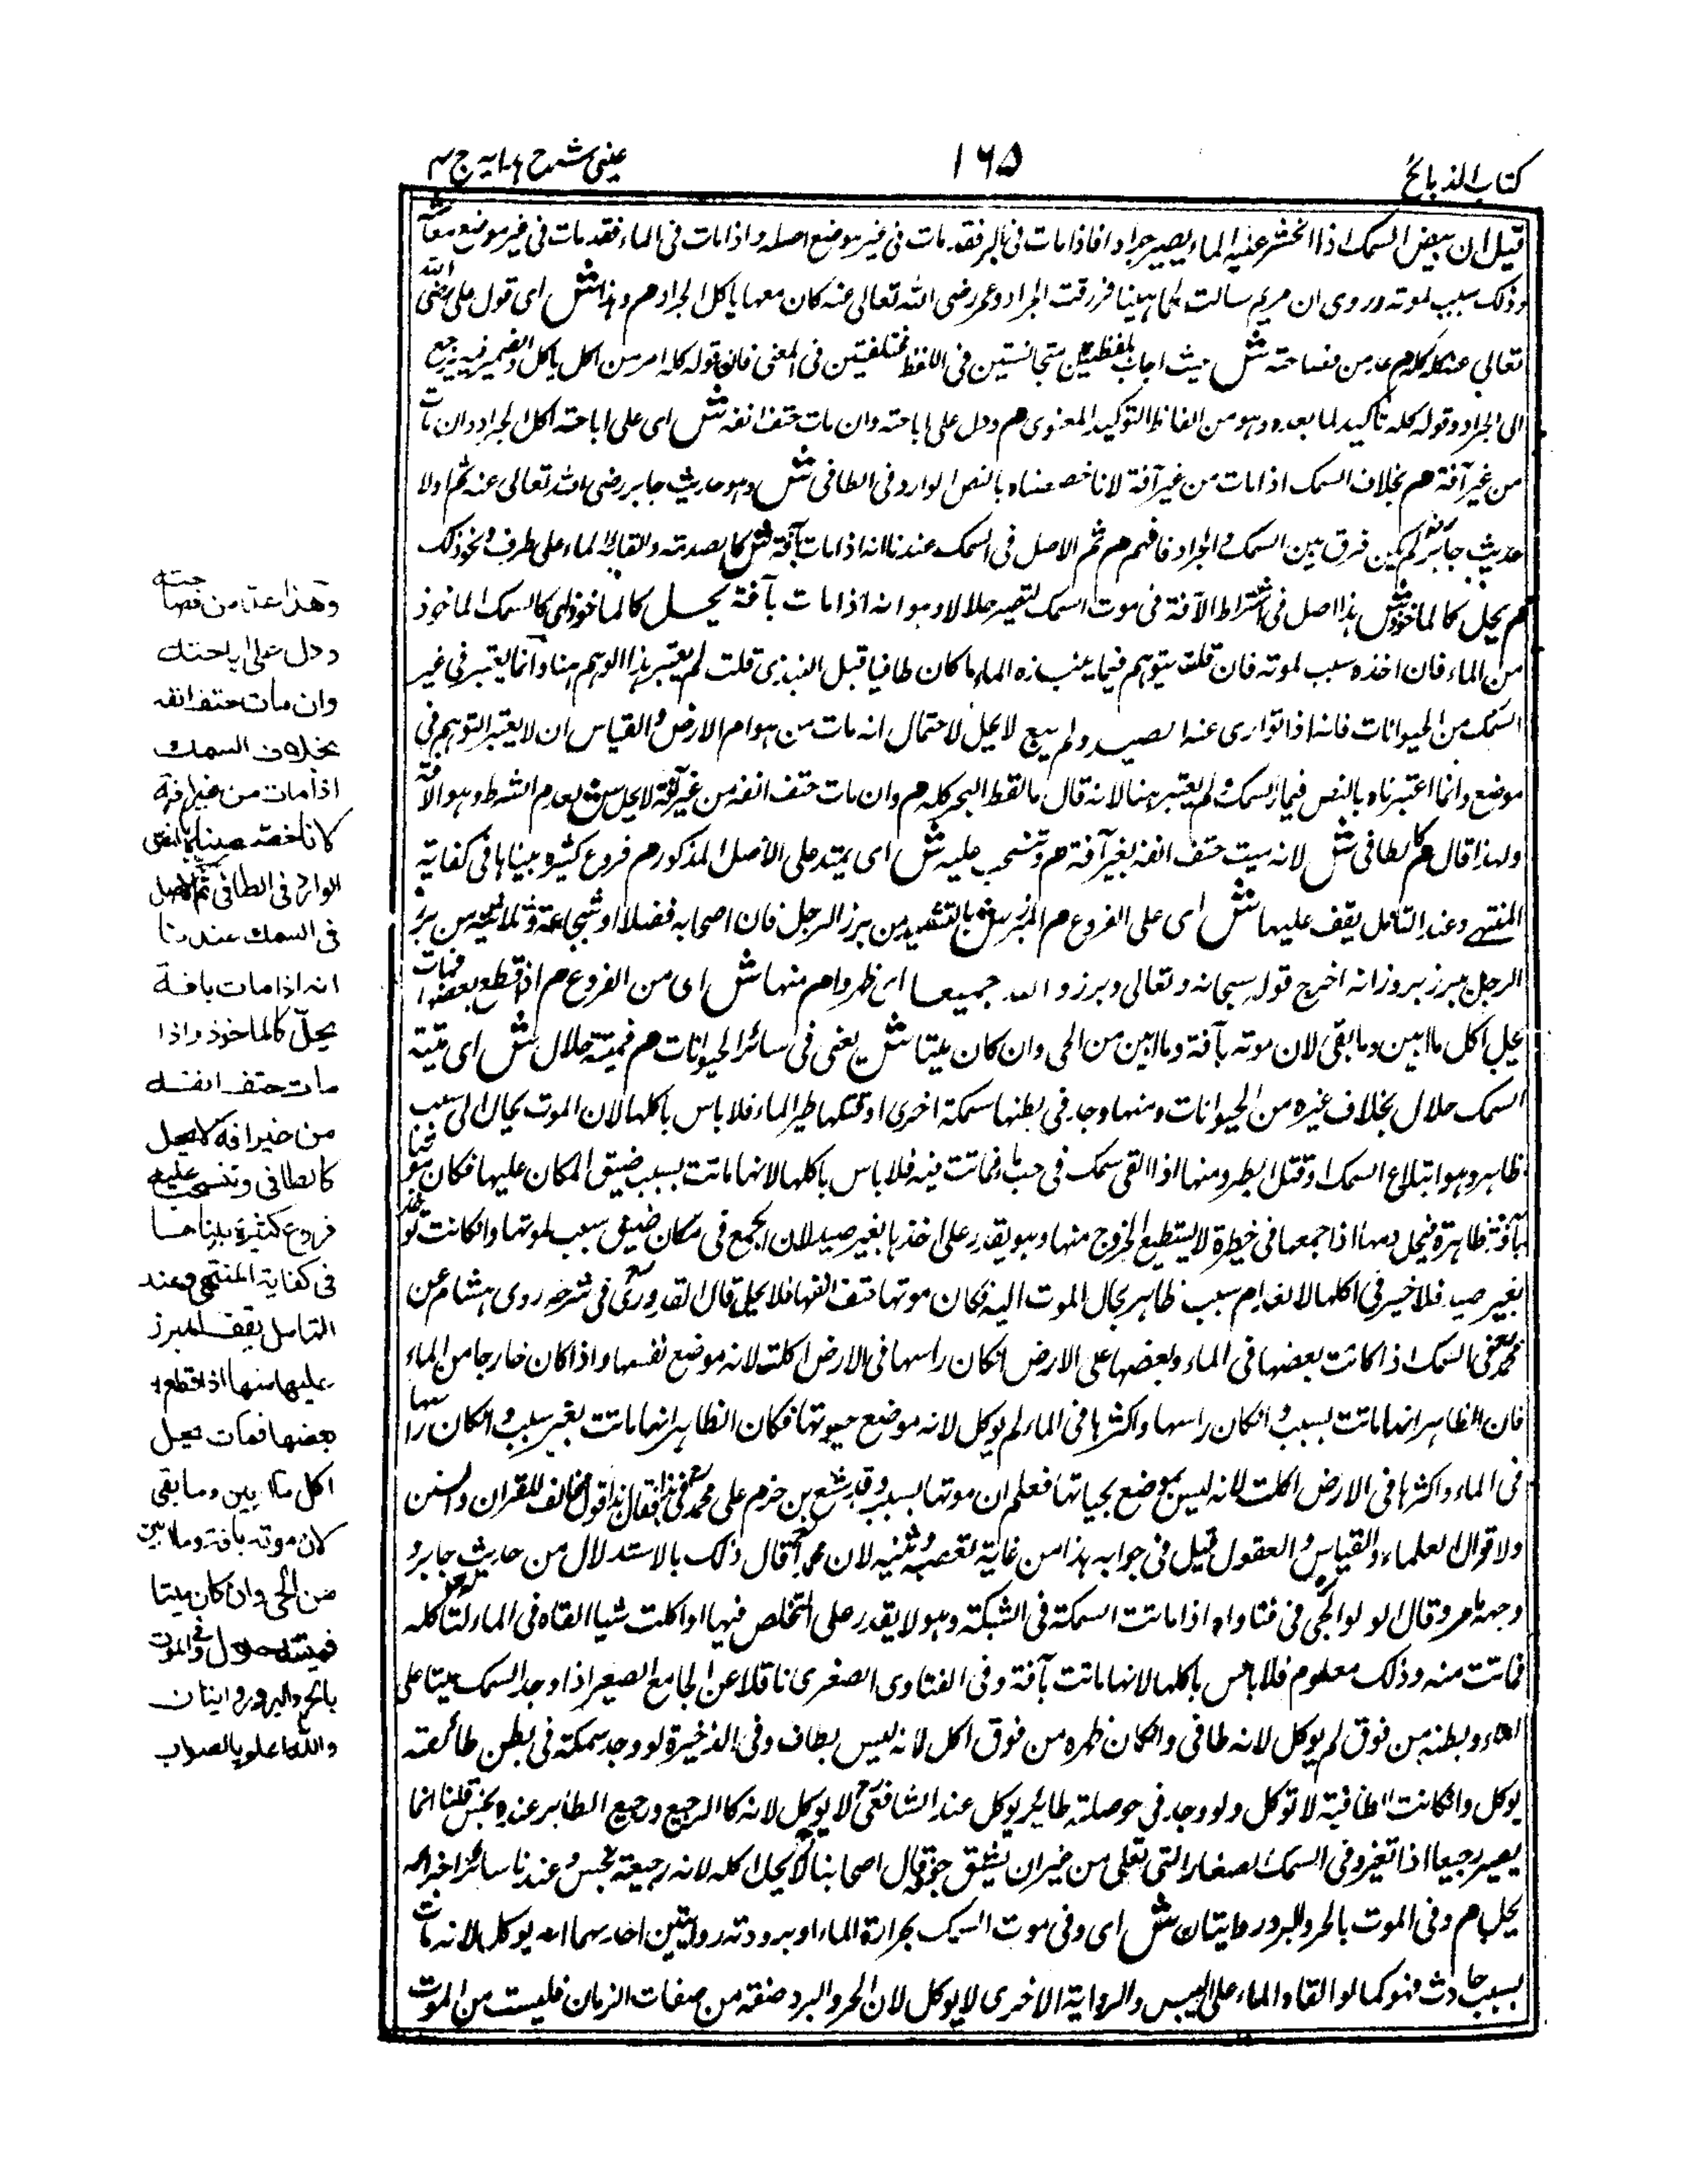 كتاب الذبائح
١٦٥
عینی شرح هدایه ج ٣
قيل ان بيض السمك اذا انحسر عنه الماء يصير جرادا فاذا مات في البر فقد مات في غير موضع اصله واذا مات في الماء فقد مات في غير موضع معاشه
وذلك سبب لموته وروى ان مريم سالت لحما فرزقت الجراد وعمر رضى الله تعالى عنه كان معها ياكل الجراد م وهذا ش اى قول على رضى الله
تعالى عنه كله كلام عد من فصاحته ش حيث اجاب بلفظين متجانستين في اللفظ مختلفتين في المعنى فان قوله كله امر من اكل ياكل والضمير فيه يرجع
الى الجراد وقوله كله تأكيد لما بعده وهو من الفاظ التوكيد المعنوى م ودل على اباحته وان مات حتف انفه ش اى على اباحته اكل الجراد وان مات
من غير آفة م بخلاف السمك اذا مات من غير آفة لانا خصصناه بالنص الوارد في الطافى ش وهو حديث جابر رضى الله تعالى عنه ثم لولا
حديث جابر لم يكن فرق بين السمك والجراد فافهم م ثم الاصل في السمك عندنا انه اذا مات بآفة ش كالصدمة والقاء الماء على طرف ونحو ذلك
م يحل كالماخوذ ش هذا اصل في اشتراط الآفة في موت السمك لتصير حلالا وهو انه اذا مات بآفة يحل كالماخوذ اى كالسمك الماخوذ
من الماء فان اخذه سبب لموته فان قلت يتوهم فيما ينبذه الماء ما كان طافيا قبل النبذ قلت لم يعتبر هذا الوهم هنا وانما يعتبر في غير
السمك من الحيوانات فانه اذا توارى عنه الصيد ولم يبع لا يحل لاحتمال انه مات من هوام الارض والقياس ان لا يعتبر التوهم في
موضع وانما اعتبرناه بالنص فيما السمك ولم يعتبر هنا لانه قال ما لفظ البحر كله م وان مات حتف انفه من غير آفة لا يحل ش لعدم الشرط وهو الآفة
ولهذا قال م كالطافى ش لانه ميت حتف انفه بغير آفة م وتنسحب عليه ش اى يمتد على الاصل المذكور م فروع كثيرة بيناها في كفاية
المنتهى وعند التامل يقف عليها ش اى على الفروع م المبرز ش بالتشديد من برز الرجل فان اصحابه فضلا او شجاعة وثلاثيه من برز
الرجل يبرز بروزا انه اخرج قوله سبحانه وتعالى وبرزوا لله جميعا اى ظهروا م منها ش اى من الفروع م اذا قطع بعضها فمات
يحل اكل ما ابين وما بقى لان موته بآفة وما ابين من الحى وان كان ميتا ش يعنى في سائر الحيوانات م فميتته حلال ش اى ميتة
السمك حلال بخلاف غيره من الحيوانات ومنها وجد في بطنها سمكة اخرى او قتلها طير الماء فلا باس باكلها لان الموت يحال الى سبب
ظاهر وهو ابتلاع السمك وقتل الطير ومنها اذا القى سمك في جب ماء فماتت فيه فلا باس باكلها لانها ماتت بسبب ضيق المكان عليها فكان موتها
بآفة ظاهرة فيحل ومنها اذا جمعها في حظيرة لا يستطيع الخروج منها وهو يقدر على اخذها بغير صيد لان الجمع في مكان ضيق سبب لموتها وان كانت لا تؤخذ
بغير صيد فلا خير في اكلها لانعدام سبب ظاهر يحال الموت اليه فكان موتها حتف انفها فلا يحل قال القدورى في شرحه روى هشام عن
محمد فى السمك اذا كانت بعضها في الماء وبعضها على الارض ان كان راسها في الارض اكلت لانه موضع نفسها واذا كان خارجا من الماء
فان الظاهر انها ماتت بسبب وان كان راسها واكثرها في الماء لم يوكل لانه موضع حيوتها فكان الظاهر انها ماتت بغير سبب وان كان راسها
في الماء واكثرها في الارض اكلت لانه ليس بموضع لحياتها فعلم ان موتها بسبب وقد شنع بن حزم على محمد في هذا فقال هذا قول مخالف للقران والسنن
ولاقوال العلماء والقياس والعقول قيل في جوابه هذا من غاية تعصبه لان محمدا قال ذلك بالاستدلال من حديث جابر و
وجهه ما مر وقال الولوالجى في فتاواه اذا ماتت السمكة في الشبكة وهو لا يقدر على التخلص فيها او اكلت شيا القاه في الماء لتاكله
فماتت منه وذلك معلوم فلا باس باكلها لانها ماتت بآفة وفى الفتاوى الصغرى ناقلا عن الجامع الصغير اذا وجد السمك ميتا على
الماء وبطنه من فوق لم يوكل لانه طافى وان كان ظهره من فوق اكل لانه ليس بطاف وفى الذخيرة لو وجد سمكة في بطن طافئة
يوكل وان كانت الطافية لا توكل ولو وجد في حوصلة طاير يوكل عند الشافعى لا يوكل لانه كالرجيع ورجيع الطاهر عنده نجس قلنا انما
يصير رجيعا اذا تغير وفى السمك الصغار التى تقلى من غير ان يشق جوفه قال اصحابنا لا يحل اكله لانه رجيعة نجس وعند سائر اخراجه
يحل م وفى الموت بالحر والبرد روايتان ش اى وفى موت السمك بحرارة الماء او برودته روايتين احدهما انه يوكل لانه مات
بسبب حادث فهو كما لو القاه الماء على اليبس والرواية الاخرى لا يوكل لان الحر والبرد صفة من صفات الزمان فليست من الموت
وهذا عد من فصاحته
ودل على اباحته
وان مات حتف انفه
بخلاف السمك
اذا مات من غير افة
لانا خصصناه بالنص
الوارد في الطافى ثم الاصل
في السمك عندنا
انه اذا مات بافة
يحلّ كالماخوذ واذا
مات حتف انفه
من غير افة لا يحل
كالطافى وتنسحب عليه
فروع كثيرة بيناها
فى كفاية المنتهى وعند
التامل يقف المبرز
عليها منها اذا قطع
بعضها فمات يحل
اكل ما ابين وما بقى
لان موته بافة وما ابين
من الحى وان كان ميتا
فميتته حلال وفى الموت
بالحر والبرد روايتان
والله اعلم بالصواب